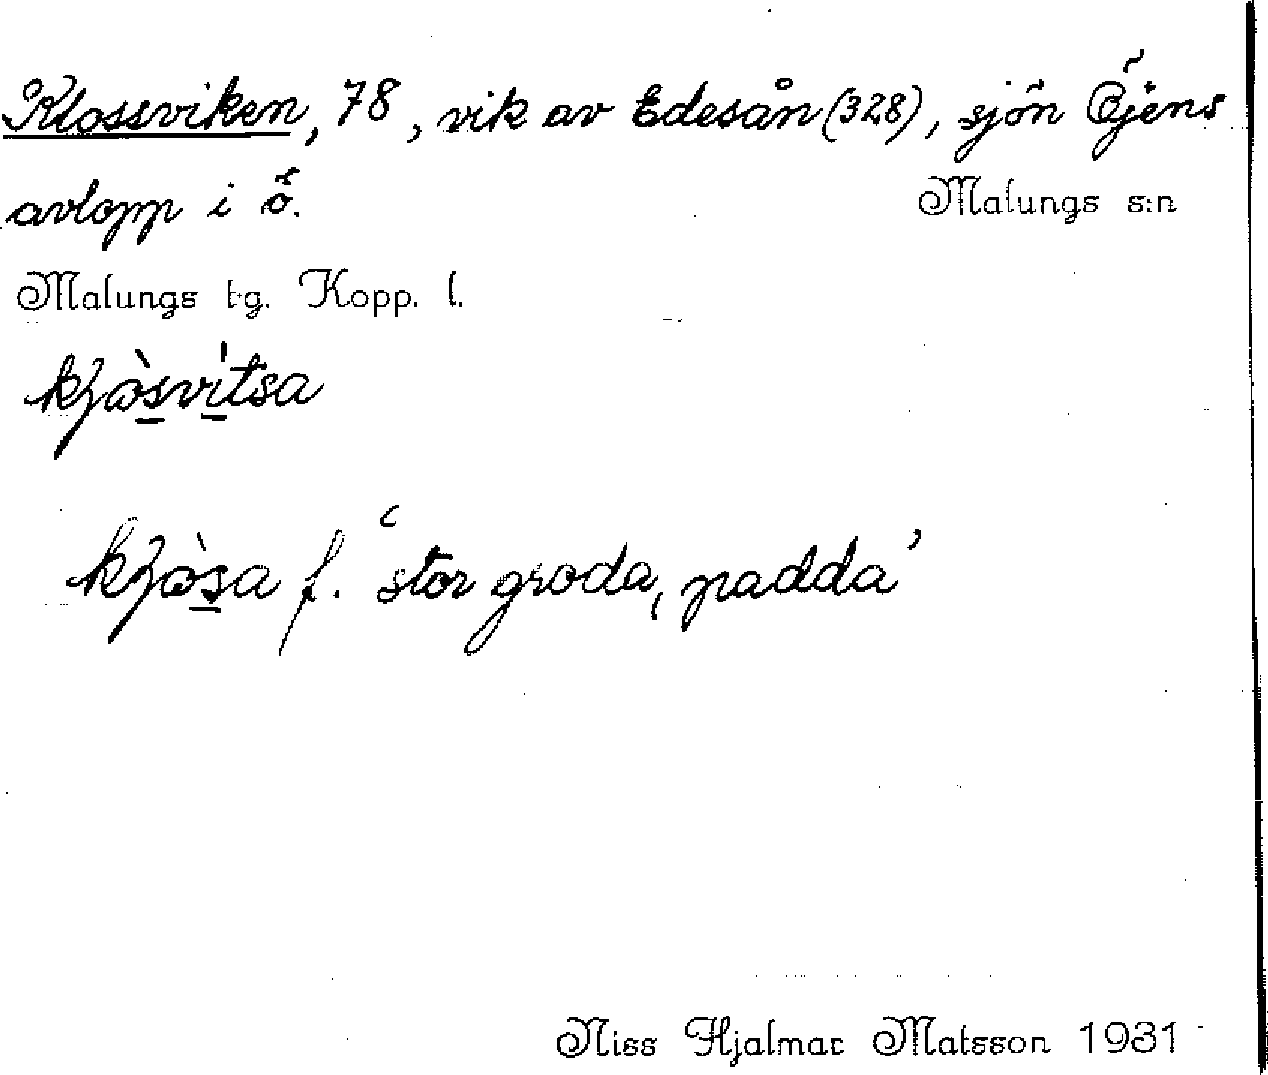 Klossviken, 78, vik av Edesån (328), sjön Öjens
avlopp i ö.
Malungs s:n
Malungs tg. Kopp. l.
kʒòsvítsa
kʒòsa f. ‘stor groda, padda’
Niss Hjalmar Matsson 1931